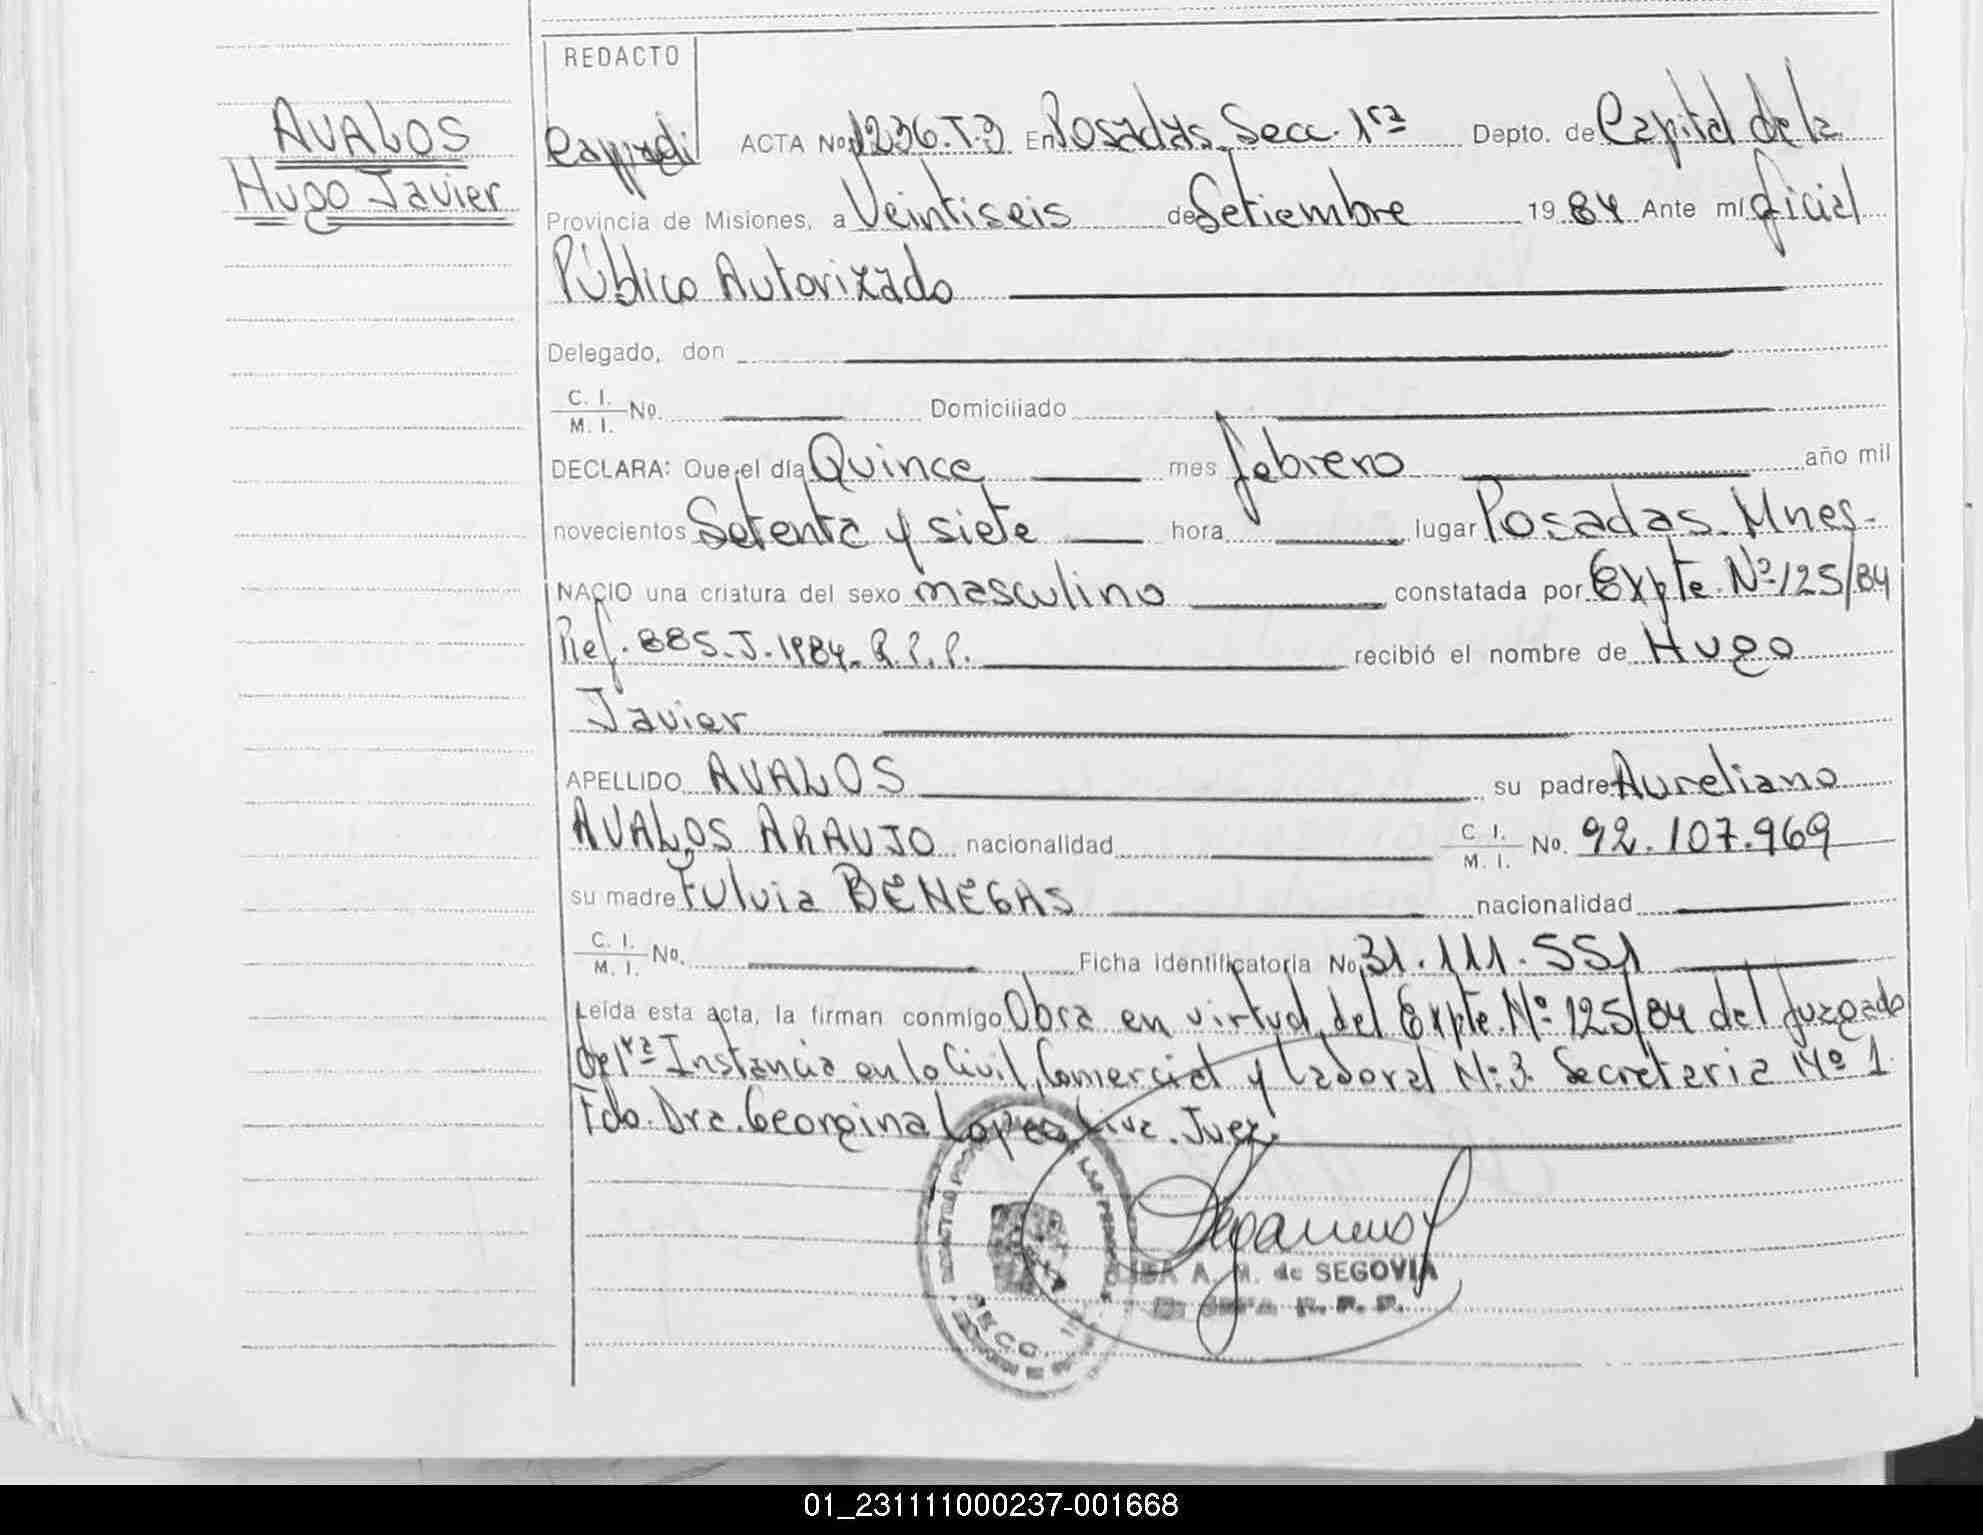 REDACTO
AVALOS
Hugo Javier
ACTA No 1236.T.3 En Posadas. Secc. 1ra Depto. de Capital de la
Provincia de Misiones, a Veintiseis de Setiembre 19 84 Ante mí Oficial
Público Autorizado
Delegado, don
C. I.
M. I. No. Domiciliado
DECLARA: Que el día Quince mes febrero año mil
novecientos Setenta y siete hora lugar Posadas. Mnes.
NACIO una criatura del sexo masculino constatada por Expte. Nº 125/84
Ref. 885.J.1984. R.P.P. recibió el nombre de Hugo
Javier
APELLIDO AVALOS su padre Aureliano
AVALOS ARAUJO nacionalidad C I.
M. I. No. 92.107.969
su madre Fulvia BENEGAS nacionalidad
C. I.
M. I. No. Ficha identificatoria No 31.111.551
Leída esta acta, la firman conmigo Obra en virtud del Expte. Nº 125/84 del Juzgado
de 1ra Instancia en lo Civil, Comercial y Laboral Nº 3. Secretaria Nº 1
Fdo. Dra. Georgina Juez.
A. M. de SEGOVIA
R. P. P.
SECC.
01_231111000237-001668